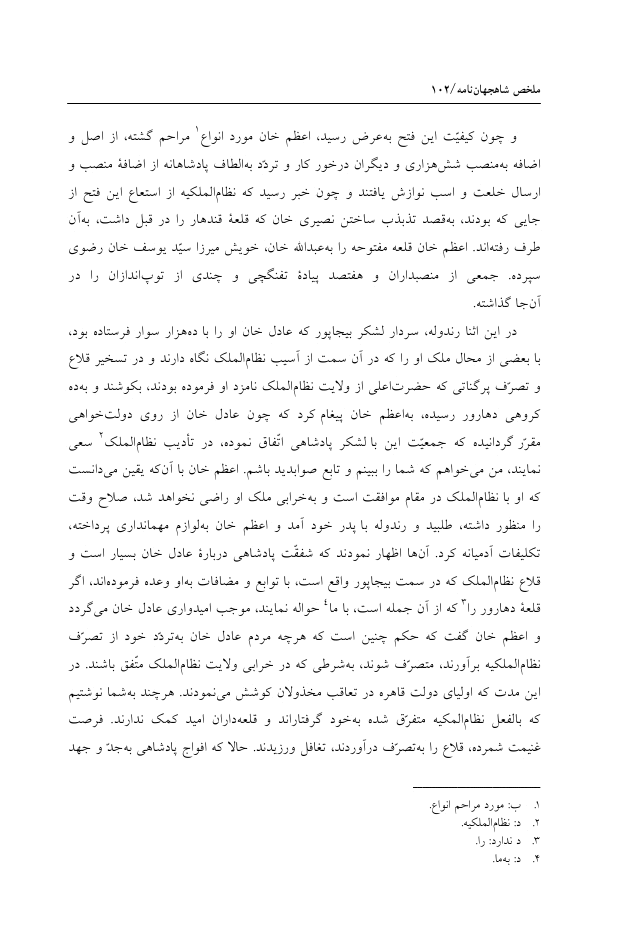 ملخص شاهجهان‌نامه/۱۰۲
و چون کیفیّت این فتح به‌عرض رسید، اعظم خان مورد انواع۱ مراحم گشته، از اصل و
اضافه به‌منصب شش‌هزاری و دیگران درخور کار و تردّد به‌الطاف پادشاهانه از اضافهٔ منصب و
ارسال خلعت و اسب نوازش یافتند و چون خبر رسید که نظام‌الملکیه از استعاع این فتح از
جایی که بودند، به‌قصد تذبذب ساختن نصیری خان که قلعهٔ قندهار را در قبل داشت، به‌آن
طرف رفته‌اند. اعظم خان قلعه مفتوحه را به‌عبدالله خان، خویش میرزا سیّد یوسف خان رضوی
سپرده. جمعی از منصبداران و هفتصد پیادهٔ تفنگچی و چندی از توپ‌اندازان را در
آن‌جا گذاشته.
در این اثنا رندوله، سردار لشکر بیجاپور که عادل خان او را با ده‌هزار سوار فرستاده بود،
با بعضی از محال ملک او را که در آن سمت از آسیب نظام‌الملک نگاه دارند و در تسخیر قلاع
و تصرّف پرگناتی که حضرت‌اعلی از ولایت نظام‌الملک نامزد او فرموده بودند، بکوشند و به‌ده
کروهی دهارور رسیده، به‌اعظم خان پیغام کرد که چون عادل خان از روی دولت‌خواهی
مقرّر گردانیده که جمعیّت این با لشکر پادشاهی اتّفاق نموده، در تأدیب نظام‌الملک۲ سعی
نمایند، من می‌خواهم که شما را ببینم و تابع صوابدید باشم. اعظم خان با آن‌که یقین می‌دانست
که او با نظام‌الملک در مقام موافقت است و به‌خرابی ملک او راضی نخواهد شد، صلاح وقت
را منظور داشته، طلبید و رندوله با پدر خود آمد و اعظم خان به‌لوازم مهمانداری پرداخته،
تکلیفات آدمیانه کرد. آن‌ها اظهار نمودند که شفقّت پادشاهی دربارهٔ عادل خان بسیار است و
قلاع نظام‌الملک که در سمت بیجاپور واقع است، با توابع و مضافات به‌او وعده فرموده‌اند، اگر
قلعهٔ دهارور را۳ که از آن جمله است، با ما۴ حواله نمایند، موجب امیدواری عادل خان می‌گردد
و اعظم خان گفت که حکم چنین است که هرچه مردم عادل خان به‌تردّد خود از تصرّف
نظام‌الملکیه برآورند، متصرّف شوند، به‌شرطی که در خرابی ولایت نظام‌الملک متّفق باشند. در
این مدت که اولیای دولت قاهره در تعاقب مخذولان کوشش می‌نمودند. هرچند به‌شما نوشتیم
که بالفعل نظام‌المکیه متفرّق شده به‌خود گرفتاراند و قلعه‌داران امید کمک ندارند. فرصت
غنیمت شمرده، قلاع را به‌تصرّف درآوردند، تغافل ورزیدند. حالا که افواج پادشاهی به‌جدّ و جهد
۱. ب: مورد مراحم انواع.
۲. د: نظام‌الملکیه.
۳. د ندارد: را.
۴. د: به‌ما.